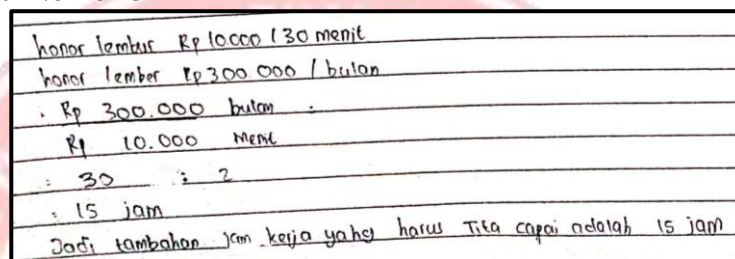 honor lembur Rp 10000 / 30 menit
honor lember Rp 300 000 / bulan
. Rp 300.000 bulan :
Rp 10.000 menit
: 30 : 2
: 15 jam
Jadi tambahan jam kerja yang harus Tita capai adalah 15 jam